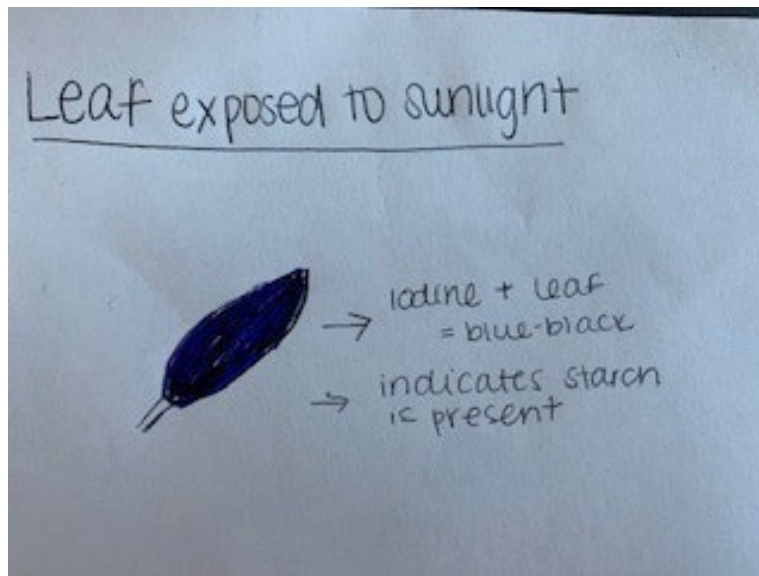 Leaf exposed to sunlight
→ iodine + leaf
= blue-black
→ indicates starch
is present